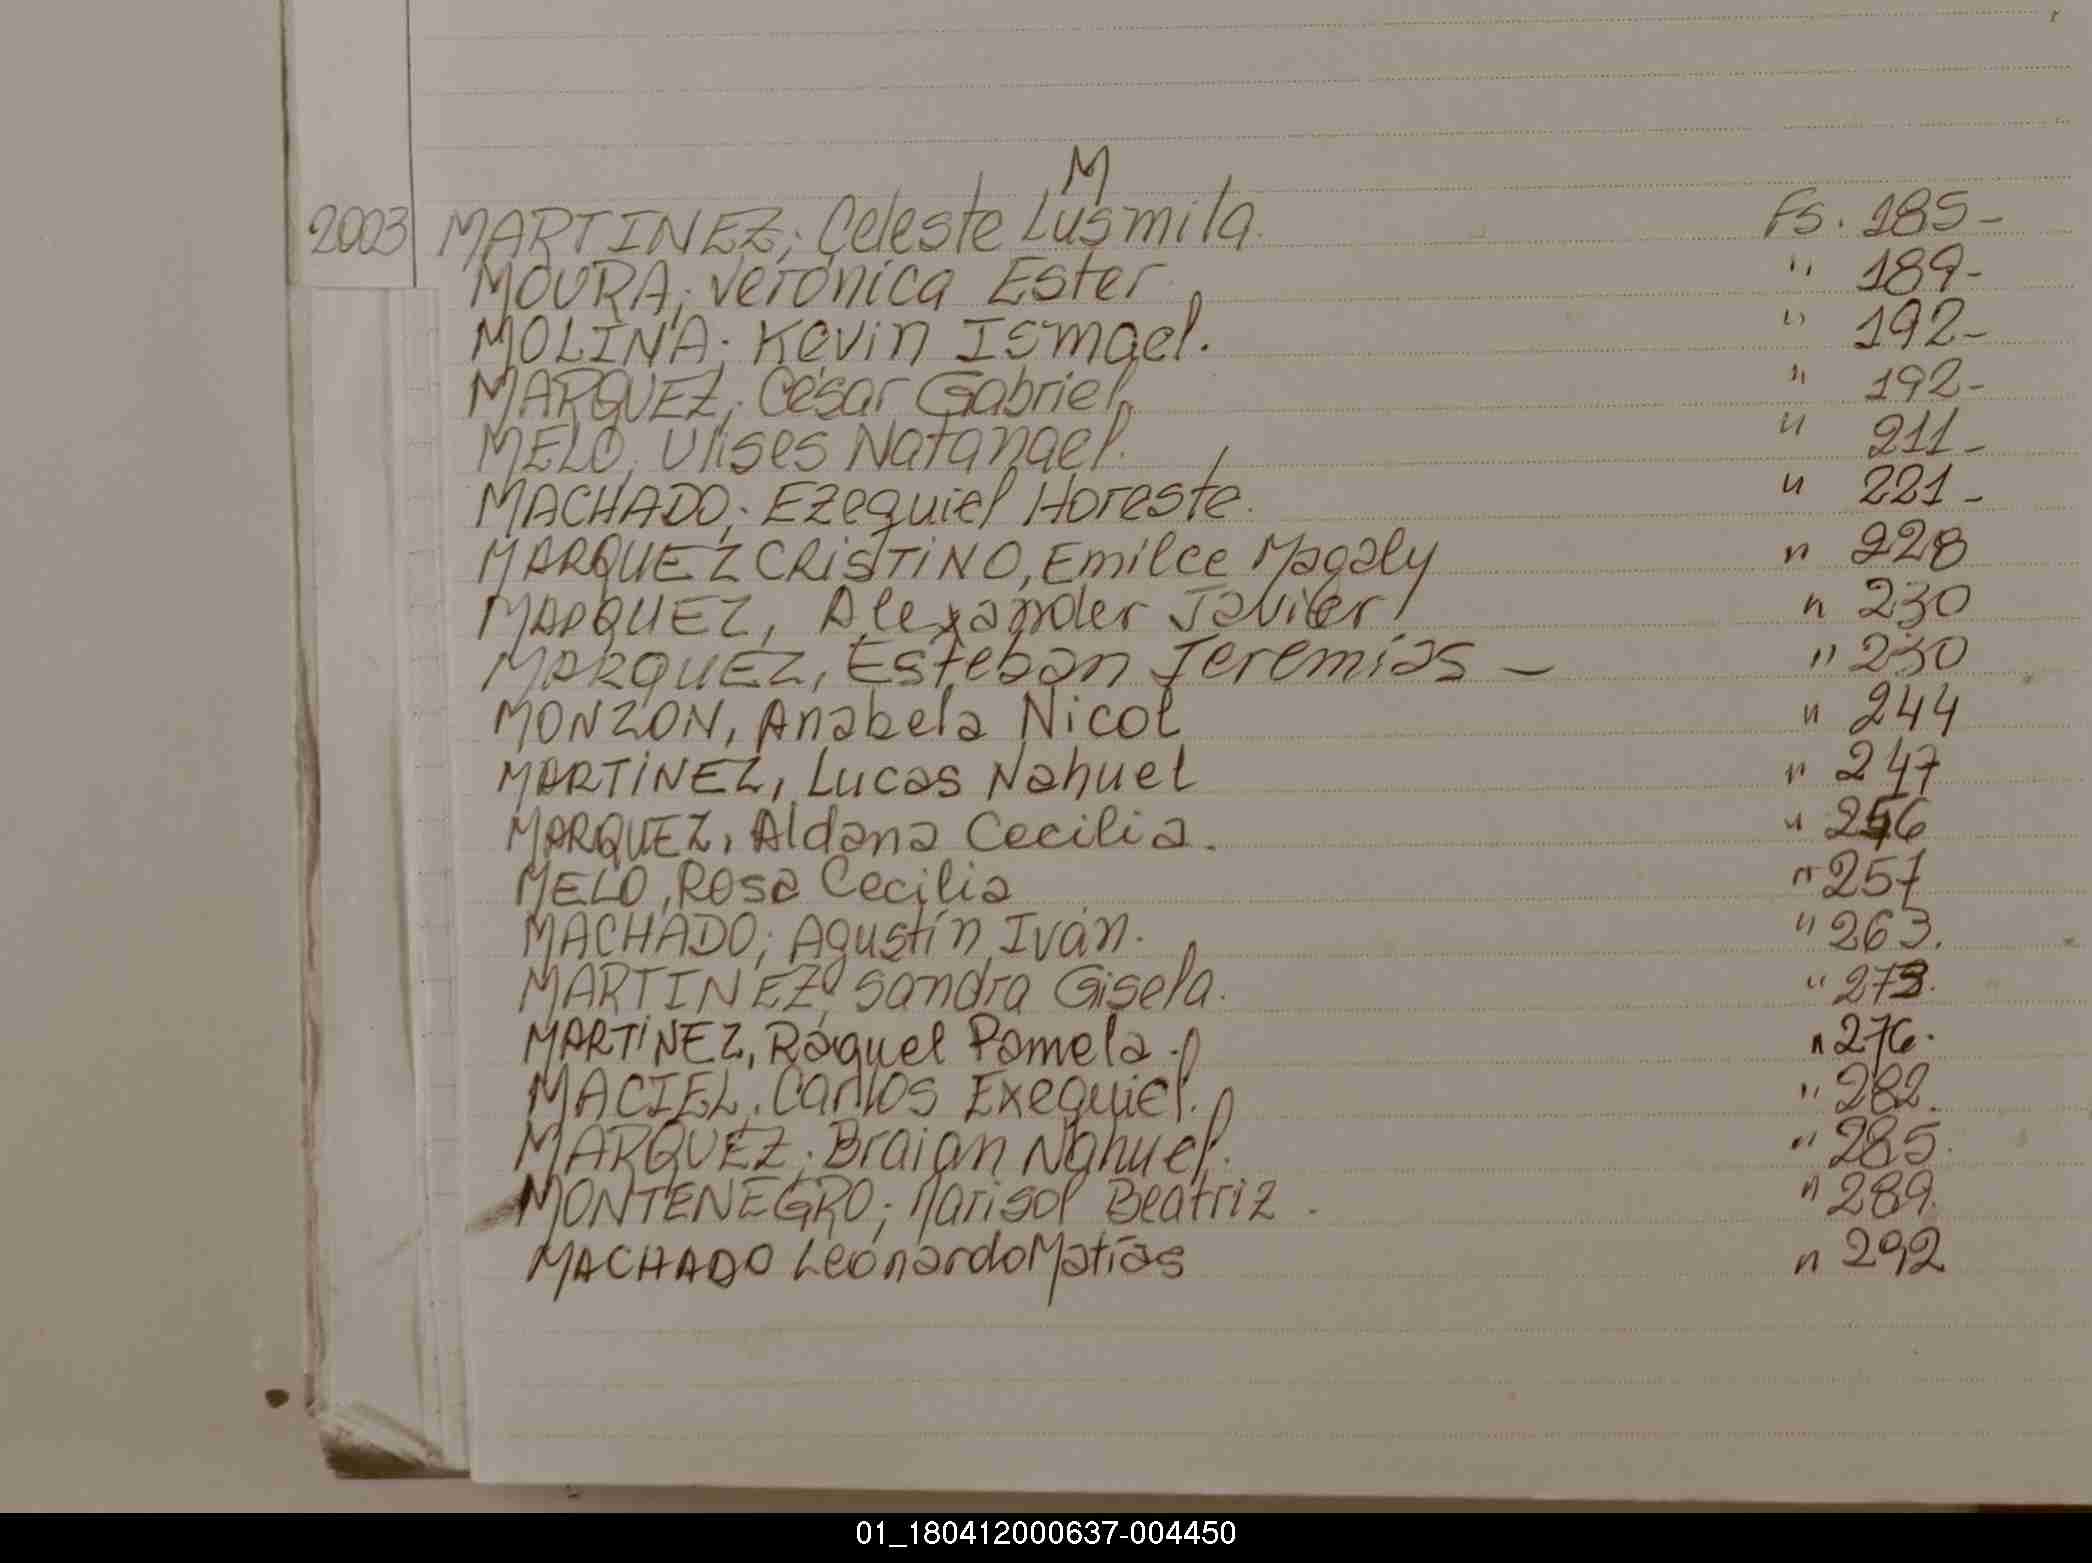 M
2003 MARTINEZ; Celeste Lusmila. Fs. 185-
MOURA; Verónica Ester. " 189-
MOLINA; Kevin Ismael. " 192-
MARQUEZ; César Gabriel. " 192-
MELO; Ulises Natanael. " 211-
MACHADO; Ezequiel Horeste. " 221-
MARQUEZ CRISTINO, Emilce Magaly " 228
MARQUEZ, Alexander Javier " 230
MARQUEZ, Esteban Jeremías - " 230
MONZON, Anabela Nicol " 244
MARTINEZ, Lucas Nahuel " 247
MARQUEZ, Aldana Cecilia. "
MELO, Rosa Cecilia " 257
MACHADO; Agustín Iván. " 263.
MARTINEZ; Sandra Gisela. " 273.
MARTINEZ, Raquel Pamela. " 276.
MACIEL; Carlos Exequiel. " 282.
MARQUEZ; Braian Nahuel. " 285.
MONTENEGRO; Marisol Beatriz. " 289.
MACHADO Leonardo Matías " 292
01_180412000637-004450